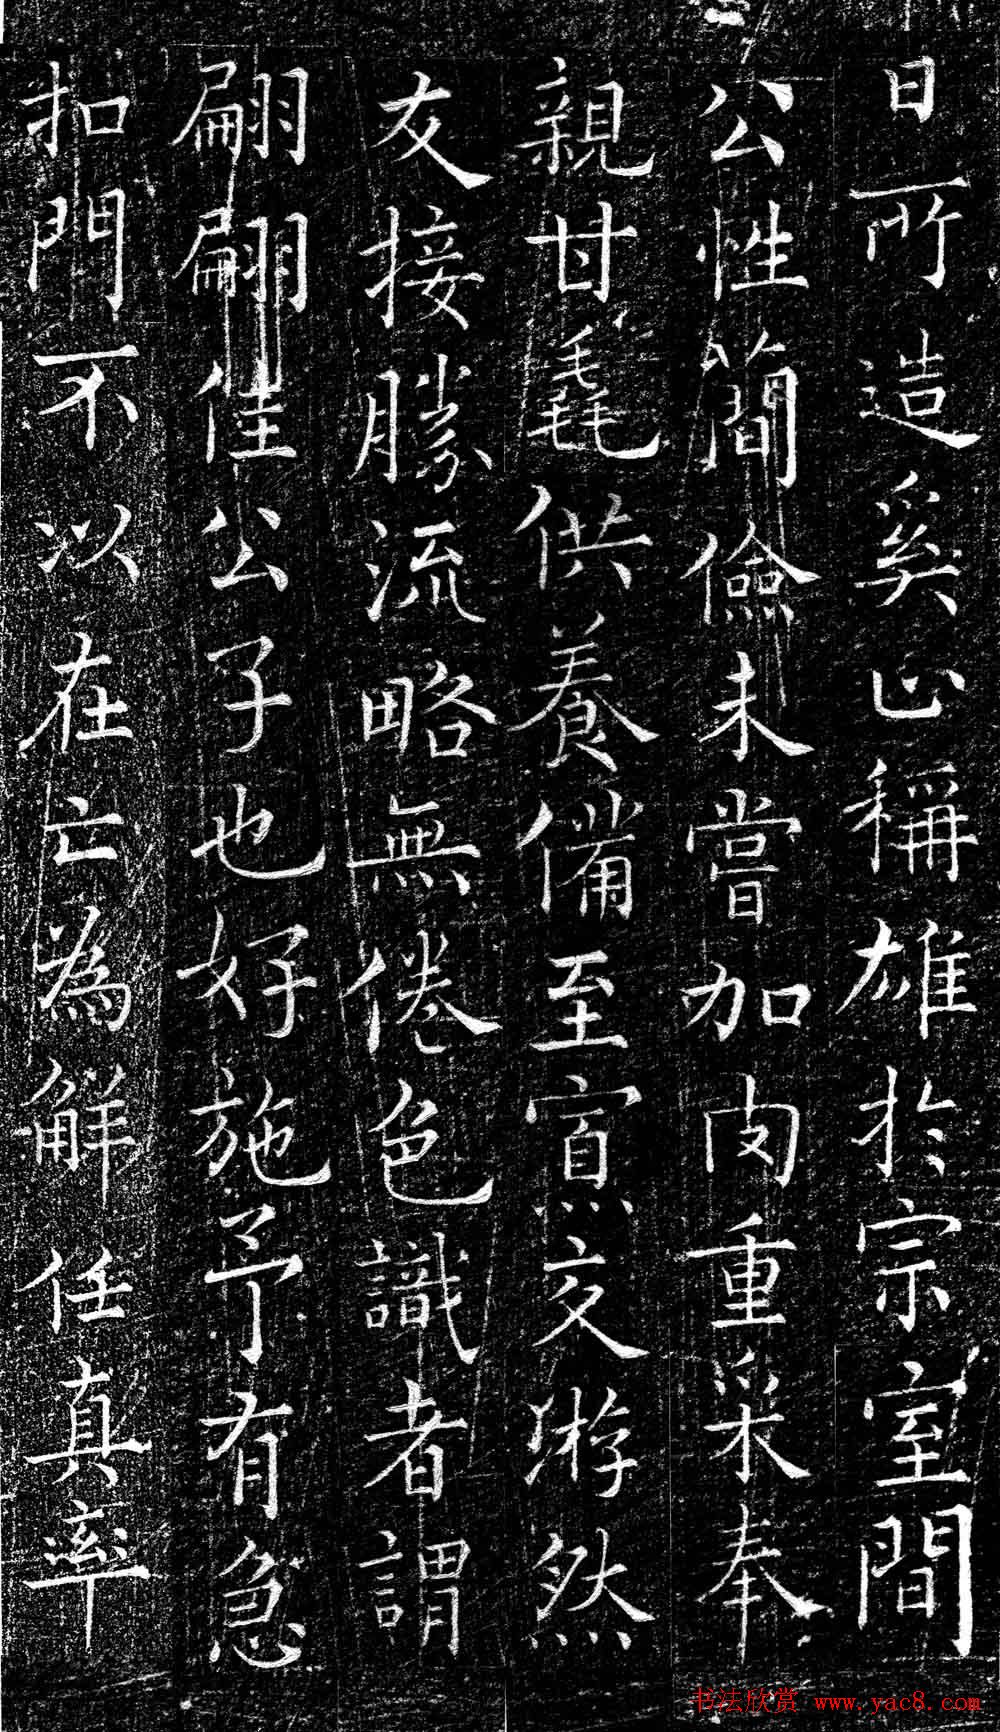 日所造奚止稱雄於宗室間
公性簡儉未嘗加肉重采奉
親甘毳供養備至寡交游然
友接勝流略無倦色識者謂
翩翩佳公子也好施予有急
扣門不以在亡為解任真率
书法欣赏 www.yac8.com